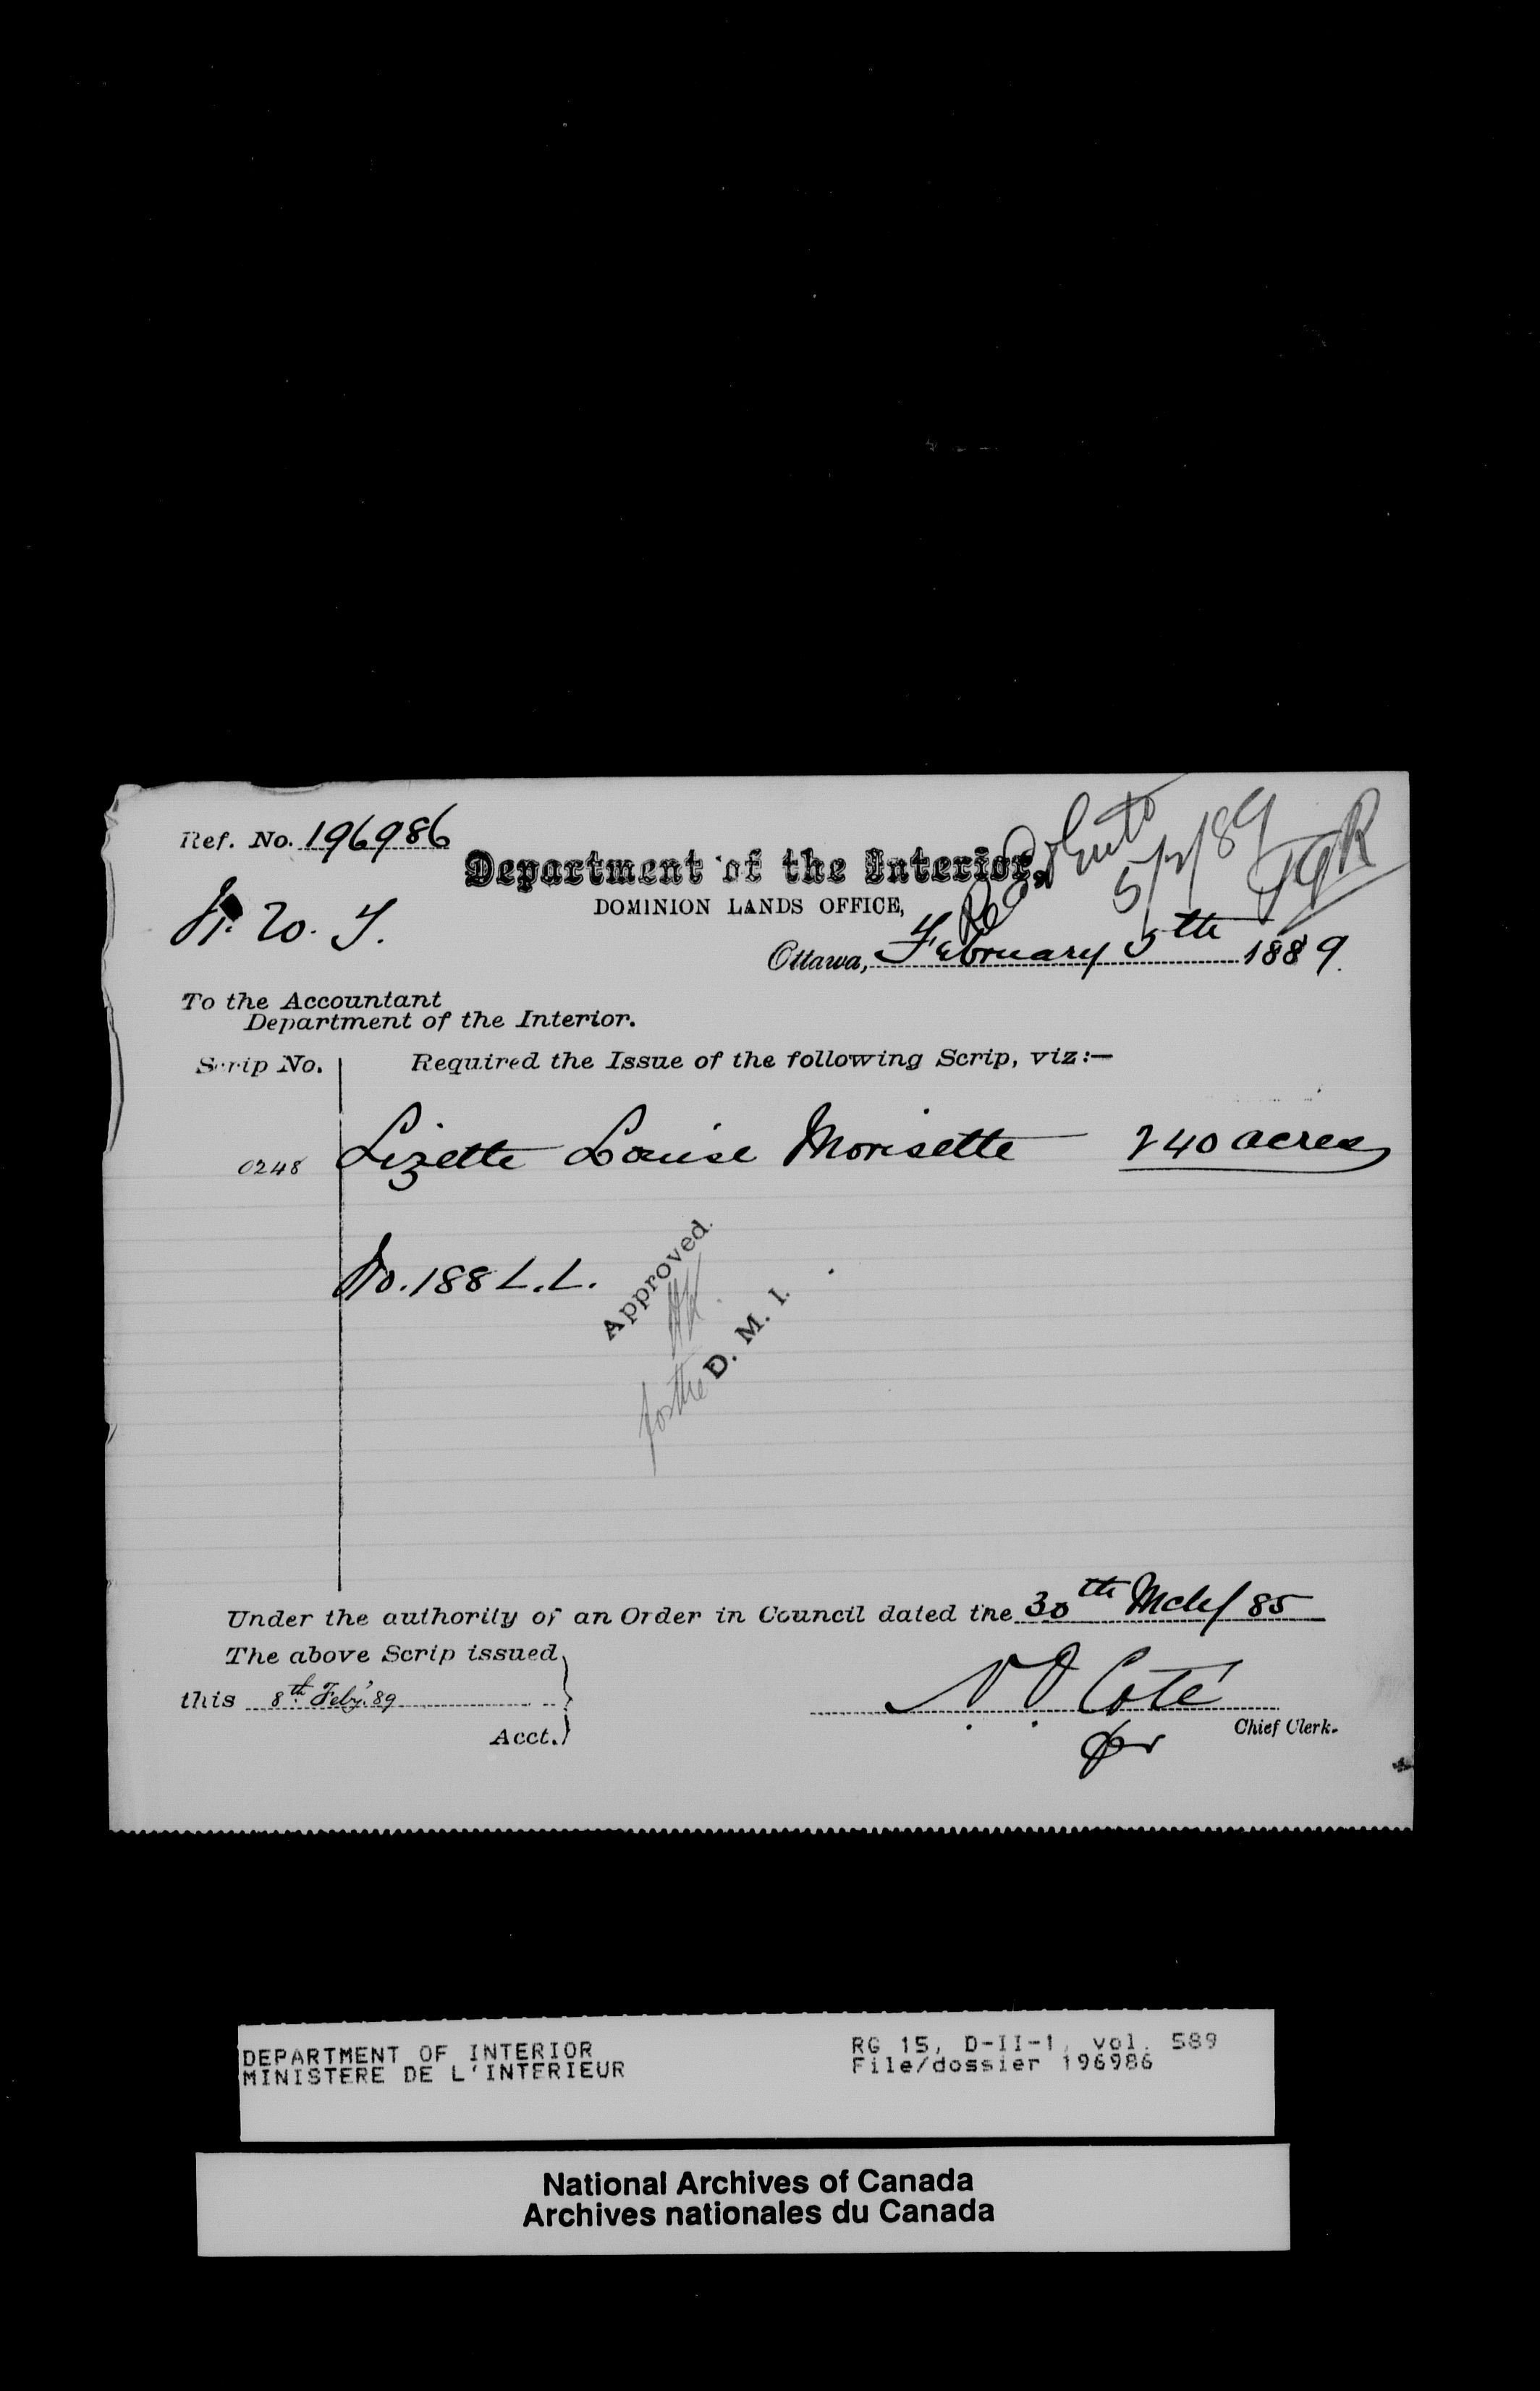 Ref. No. 196986
5/2/89
Department of the Interior,
DOMINION LANDS OFFICE,
N. W. T.
Ottawa, February 5th 1889.
To the Accountant
Department of the Interior.
Scrip No. Required the Issue of the following Scrip, viz:—
0248 Lizette Louise Morisette 240 acres
No. 188 L.L.
Approved.
for the D. M. I.
Under the authority of an Order in Council dated the 30th Mch/85
The above Scrip issued
this 8th Feby. 89
N O Coté
Acct.
Chief Clerk.
for
DEPARTMENT OF INTERIOR
MINISTERE DE L'INTERIEUR
RG 15, D-II-1, vol. 589
File/dossier 196986
National Archives of Canada
Archives nationales du Canada